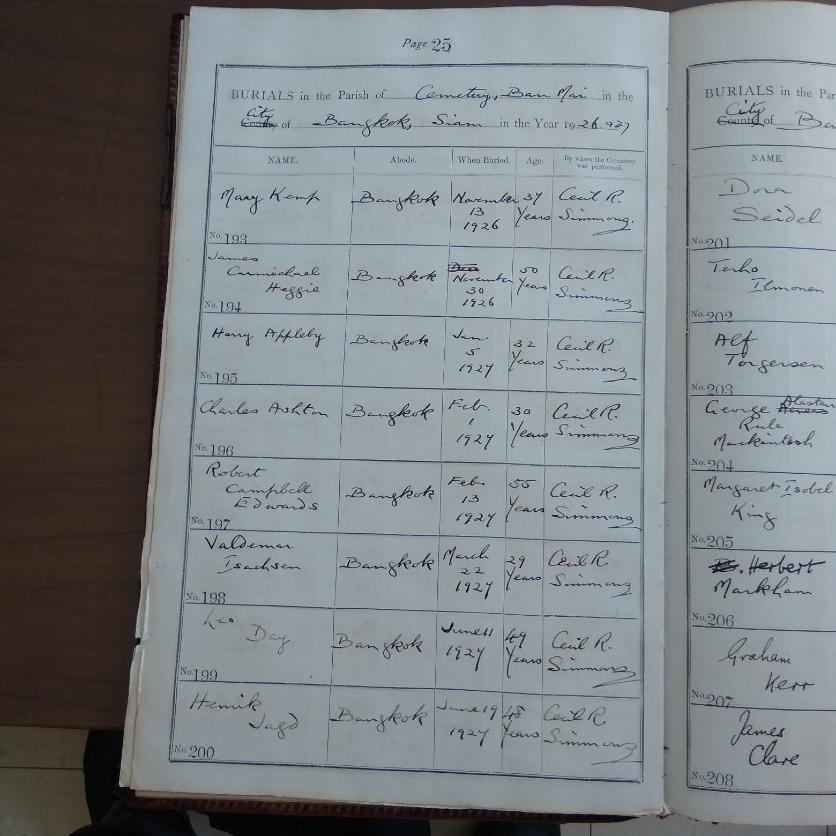 Page 25
BURIALS in the Parish of Cemetery, Ban Mai in the
City
County of Bangkok, Siam in the Year 1926.927
NAME. Abode. When Buried. Age. By whom the Ceremony was performed.
Mary Kemp Bangkok November 13 1926 37 Years Cecil R. Simmons.
No. 193
James Carmichael Heggie Bangkok November 30 1926 50 Years Cecil R. Simmons
No. 194
Harry Appleby Bangkok Jan. 5 1927 32 Years Cecil R. Simmons
No. 195
Charles Ashton Bangkok Feb. 1 1927 30 Years Cecil R. Simmons
No. 196
Robert Campbell Edwards Bangkok Feb. 13 1927 55 Years Cecil R. Simmons
No. 197
Valdemar Isachsen Bangkok March 22 1927 29 Years Cecil R. Simmons
No. 198
Leo Day Bangkok June 11 1927 49 Years Cecil R. Simmons
No. 199
Henrik Jagd Bangkok June 19 1927 48 Years Cecil R. Simmons
No. 200
BURIALS in the Par
City
County of Ba
NAME.
Dora
Seidel
No. 201
Terho
Ilmonen
No. 202
Alf
Torgersen
No. 203
Alastair
George
Rule
Mackintosh
No. 204
Margaret Isobel
King
No. 205
Herbert
Markham
No. 206
Graham
Kerr
No. 207
James
Clare
No. 208